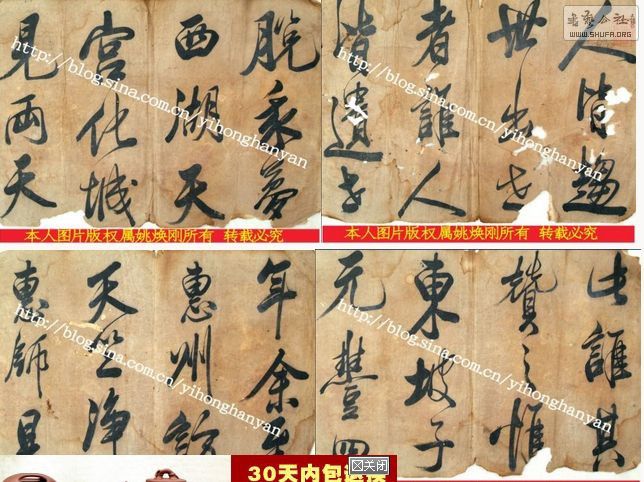 脫我夢
西湖天
宮化城
見兩天
http://blog.sina.com.cn/yihonghanyan
本人图片版权属姚焕刚所有 转载必究
人皆趨
世出世
者誰人
皆遺世
http://blog.sina.com.cn/yihonghanyan
书艺公社
WWW.SHUFA.ORG
本人图片版权属姚焕刚所有 转载必究
年余在
惠州
天竺淨
惠師
http://blog.sina.com.cn/yihonghanyan
此誰其
贊之惟
東坡子
元豐四
http://blog.sina.com.cn/yihonghanyan
30天内包退换
关闭